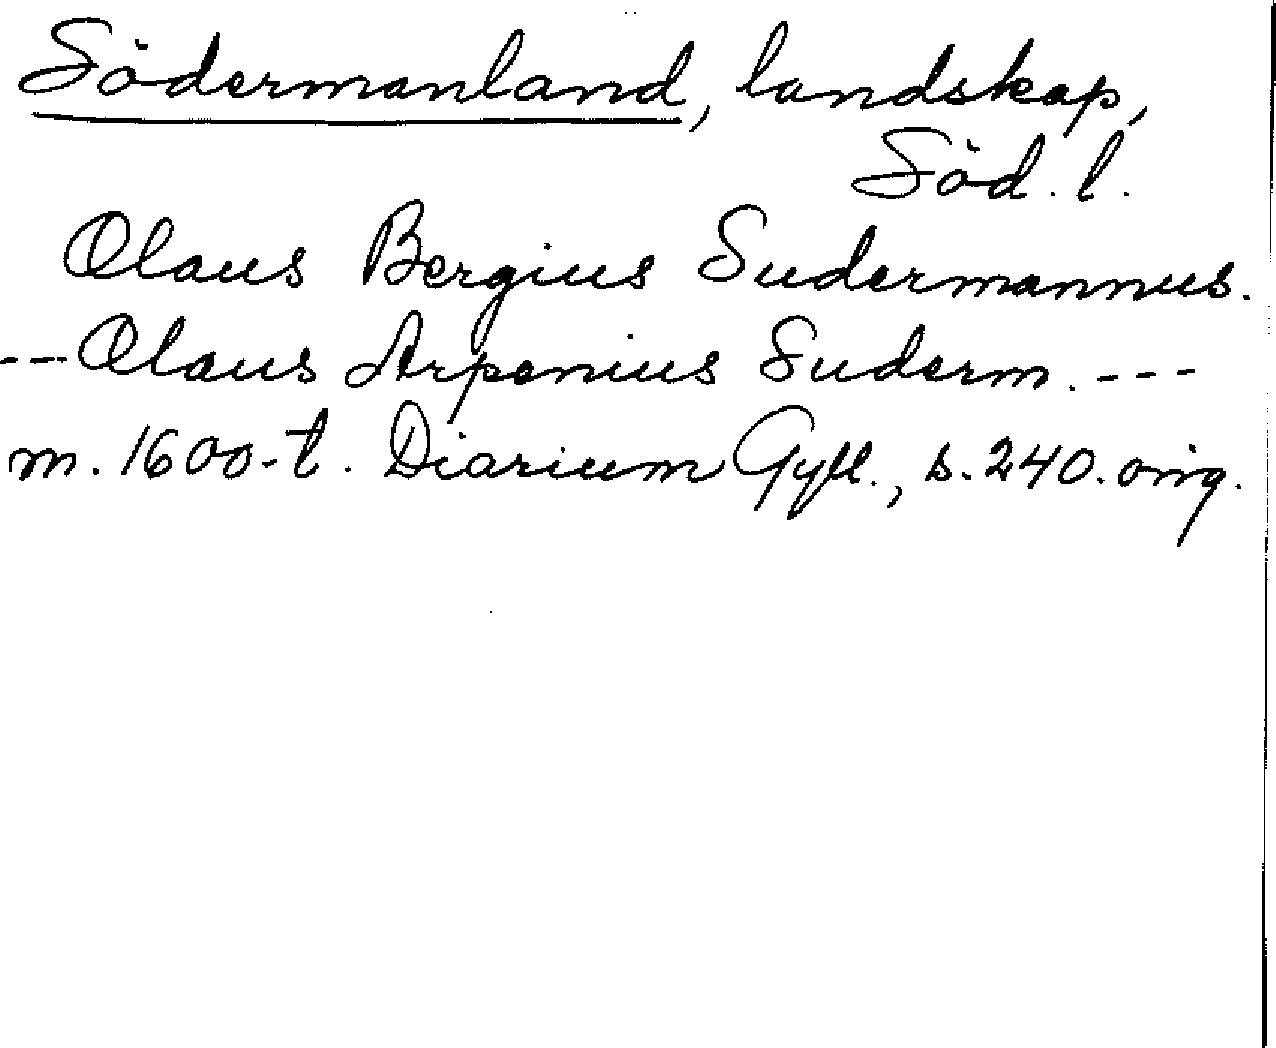 Södermanland, landskap,
Söd. l.
Olaus Bergius Sudermannus.
-- Olaus Arpenius Suderm. ---
m. 1600-t. Diarium Gyll., s. 240. orig.